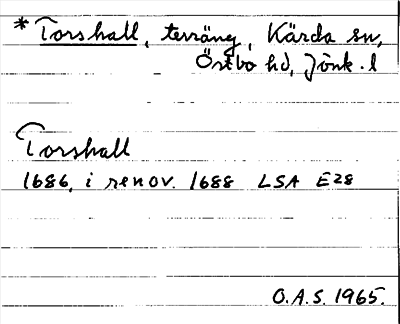 * Torshall, terräng, Kärda sn,
Östbo hd, Jönk. l
Torshall
1686, i renov. 1688 LSA E28
O.A.S. 1965.